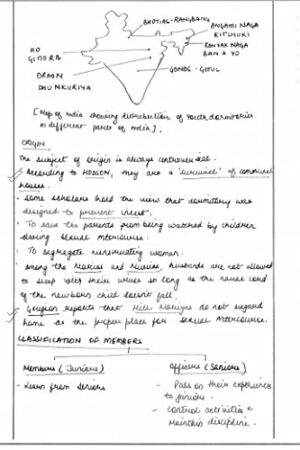 BHOTIAS - RANGBANG
ANGAMI NAGA
KICHUKI
KONYAK NAGA
BAN & YO
HO
GITIORA
ORAON
DHUMKURIYA
GONDS - GOTUL
[Map of India showing distribution of Youth dormitories
in different parts of India].
ORIGIN
The subject of origin is always controversial.
According to HODSON, they are a "survival" of communal
houses.
- Some scholars hold the view that dormitory was
designed to prevent incest.
- To save the parents from being watched by children
during sexual intercourse.
- To segregate menstruating woman.
- among the and husbands are not allowed
to sleep with their wives so long as the naval cord
of the newborn child doesn't fall.
- reports that Hill do not regard
home as the proper place for sexual intercourse.
CLASSIFICATION OF MEMBERS
Members (Juniors)
- Learn from seniors
Officers (Seniors)
- Pass on their experience
to juniors.
- Control activities &
maintain discipline.